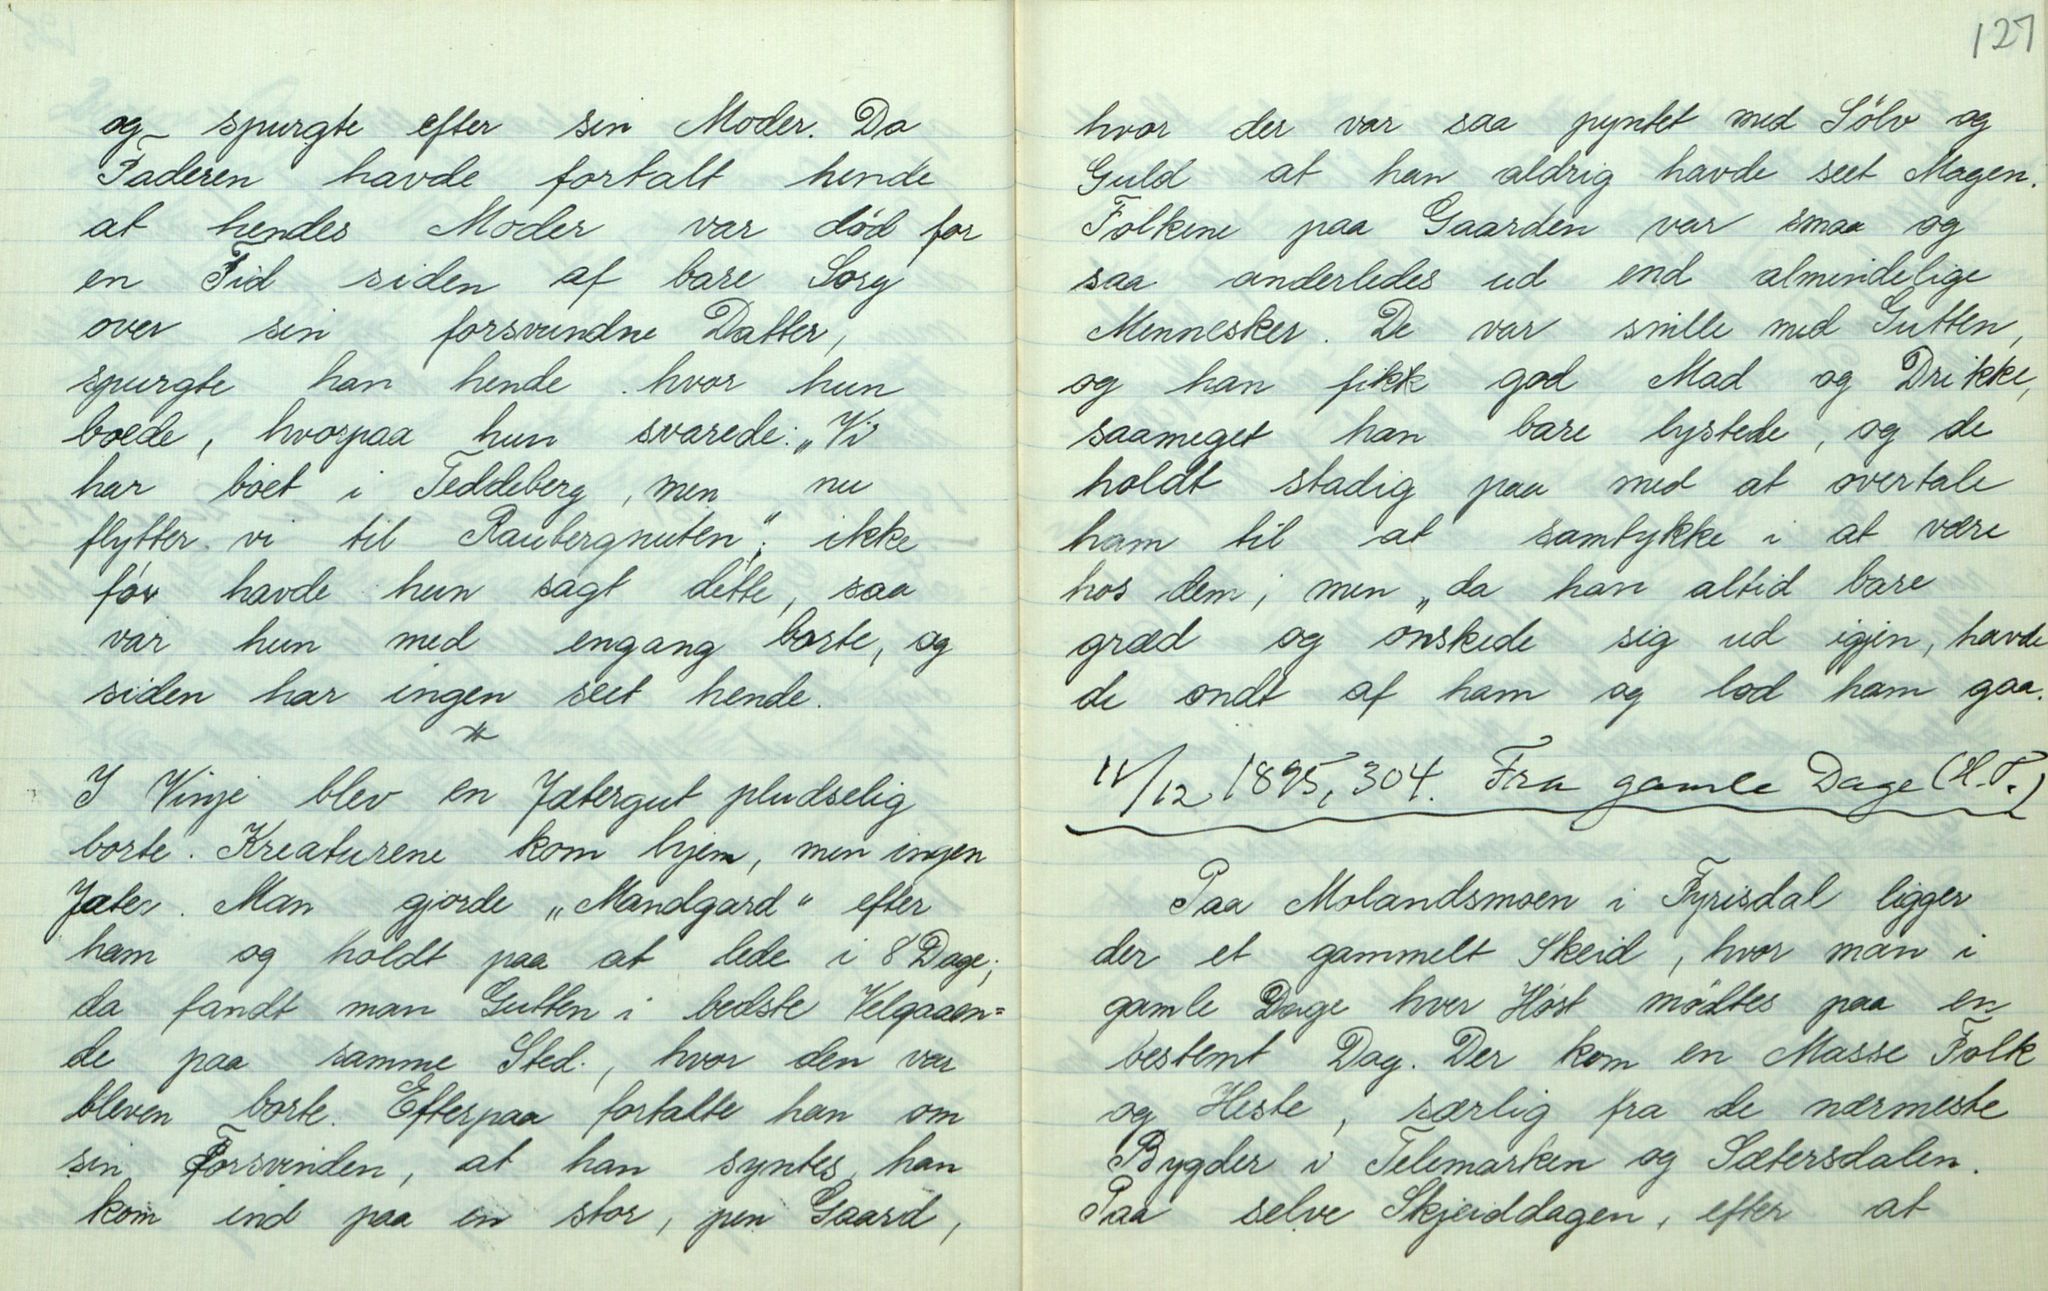 og spurgte efter sin Moder. Da
Faderen havde fortalt hende
at hendes Moder var død for
en Tid siden af bare Sorg
over sin forsvundne Datter,
spurgte han hende hvor hun
boede, hvorpaa hun svarede: „Vi
har boet i Teddeberg, men nu
flytter vi til Raubergnuten“; ikke
før havde hun sagt dette, saa
var hun med engang borte, og
siden har ingen seet hende.
*
I Vinje blev en Jætergut pludselig
borte. Kreaturene kom hjem, men ingen
Jæter. Man gjorde „Mandgard“ efter
ham og holdt paa at lede i 8 Dage;
da fandt man Gutten i bedste Velgaaen=
de paa samme Sted, hvor den var
bleven borte. Efterpaa fortalte han om
sin Forsvinden, at han syntes han
kom ind paa en stor, pen Gaard,
127
hvor der var saa pyntet med Sölv og
Guld at han aldrig havde seet Magen.
Folkene paa Gaarden var smaa og
saa anderledes ud end almindelige
Mennesker. De var snille med Gutten,
og han fikk god Mad og Drikke,
saameget han bare lystede, og de
holdt stadig paa med at overtale
ham til at samtykke i at være
hos dem; men „da han altid bare
græd og onskede sig ud igjen, havde
de ondt af ham og lod ham gaa.
11/12 1895, 304. Fra gamle Dage (H.T.)
Paa Molandsmoen i Fyrisdal ligger
der et gammelt Skeid, hvor man i
gamle Dage hver Høst mödtes paa en
bestemt Dag. Der kom en Masse Folk
og Heste, særlig fra de nærmeste
Bygder i Telemarken og Sætersdalen.
Paa selve Skjeiddagen, efter at